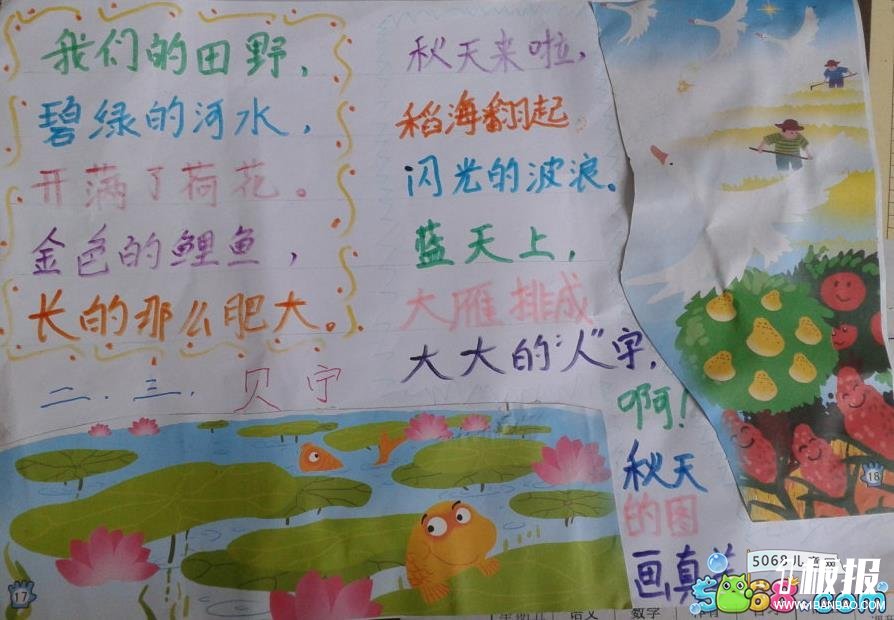 我们的田野，
碧绿的河水，
开满了荷花。
金色的鲤鱼，
长的那么肥大。
二．三．贝宁
秋天来啦，
稻海翻起。
闪光的波浪。
蓝天上，
大雁排成
大大的“人”字，
啊！
秋天
的图
画真美
17
18
5068儿童网
5068.com
板报
WWW.1BANBAO.COM
语文
数学